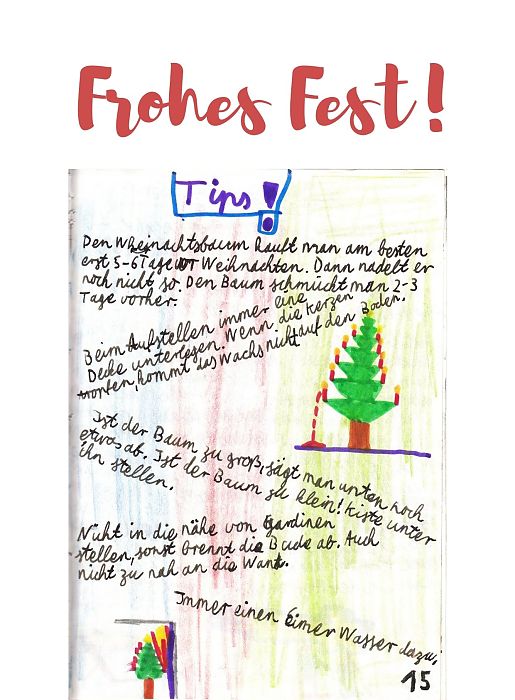 Frohes Fest!
Tips!
Den Weihnachtsbaum kauft man am besten
erst 5-6 Tage vor Weihnachten. Dann nadelt er
noch nicht so. Den Baum schmückt man 2-3
Tage vorher.
Beim Aufstellen immer eine
Decke unterlegen. Wenn die Kerzen
kommt das Wachs nicht auf den Boden.
Ist der Baum zu groß, sägt man unten noch
etwas ab. Ist der Baum zu klein! Kiste unter
ihn stellen.
Nicht in die nähe von Gardinen
stellen, sonst brennt die Bude ab. Auch
nicht zu nah an die Want.
Immer einen Eimer Wasser dazu,
15